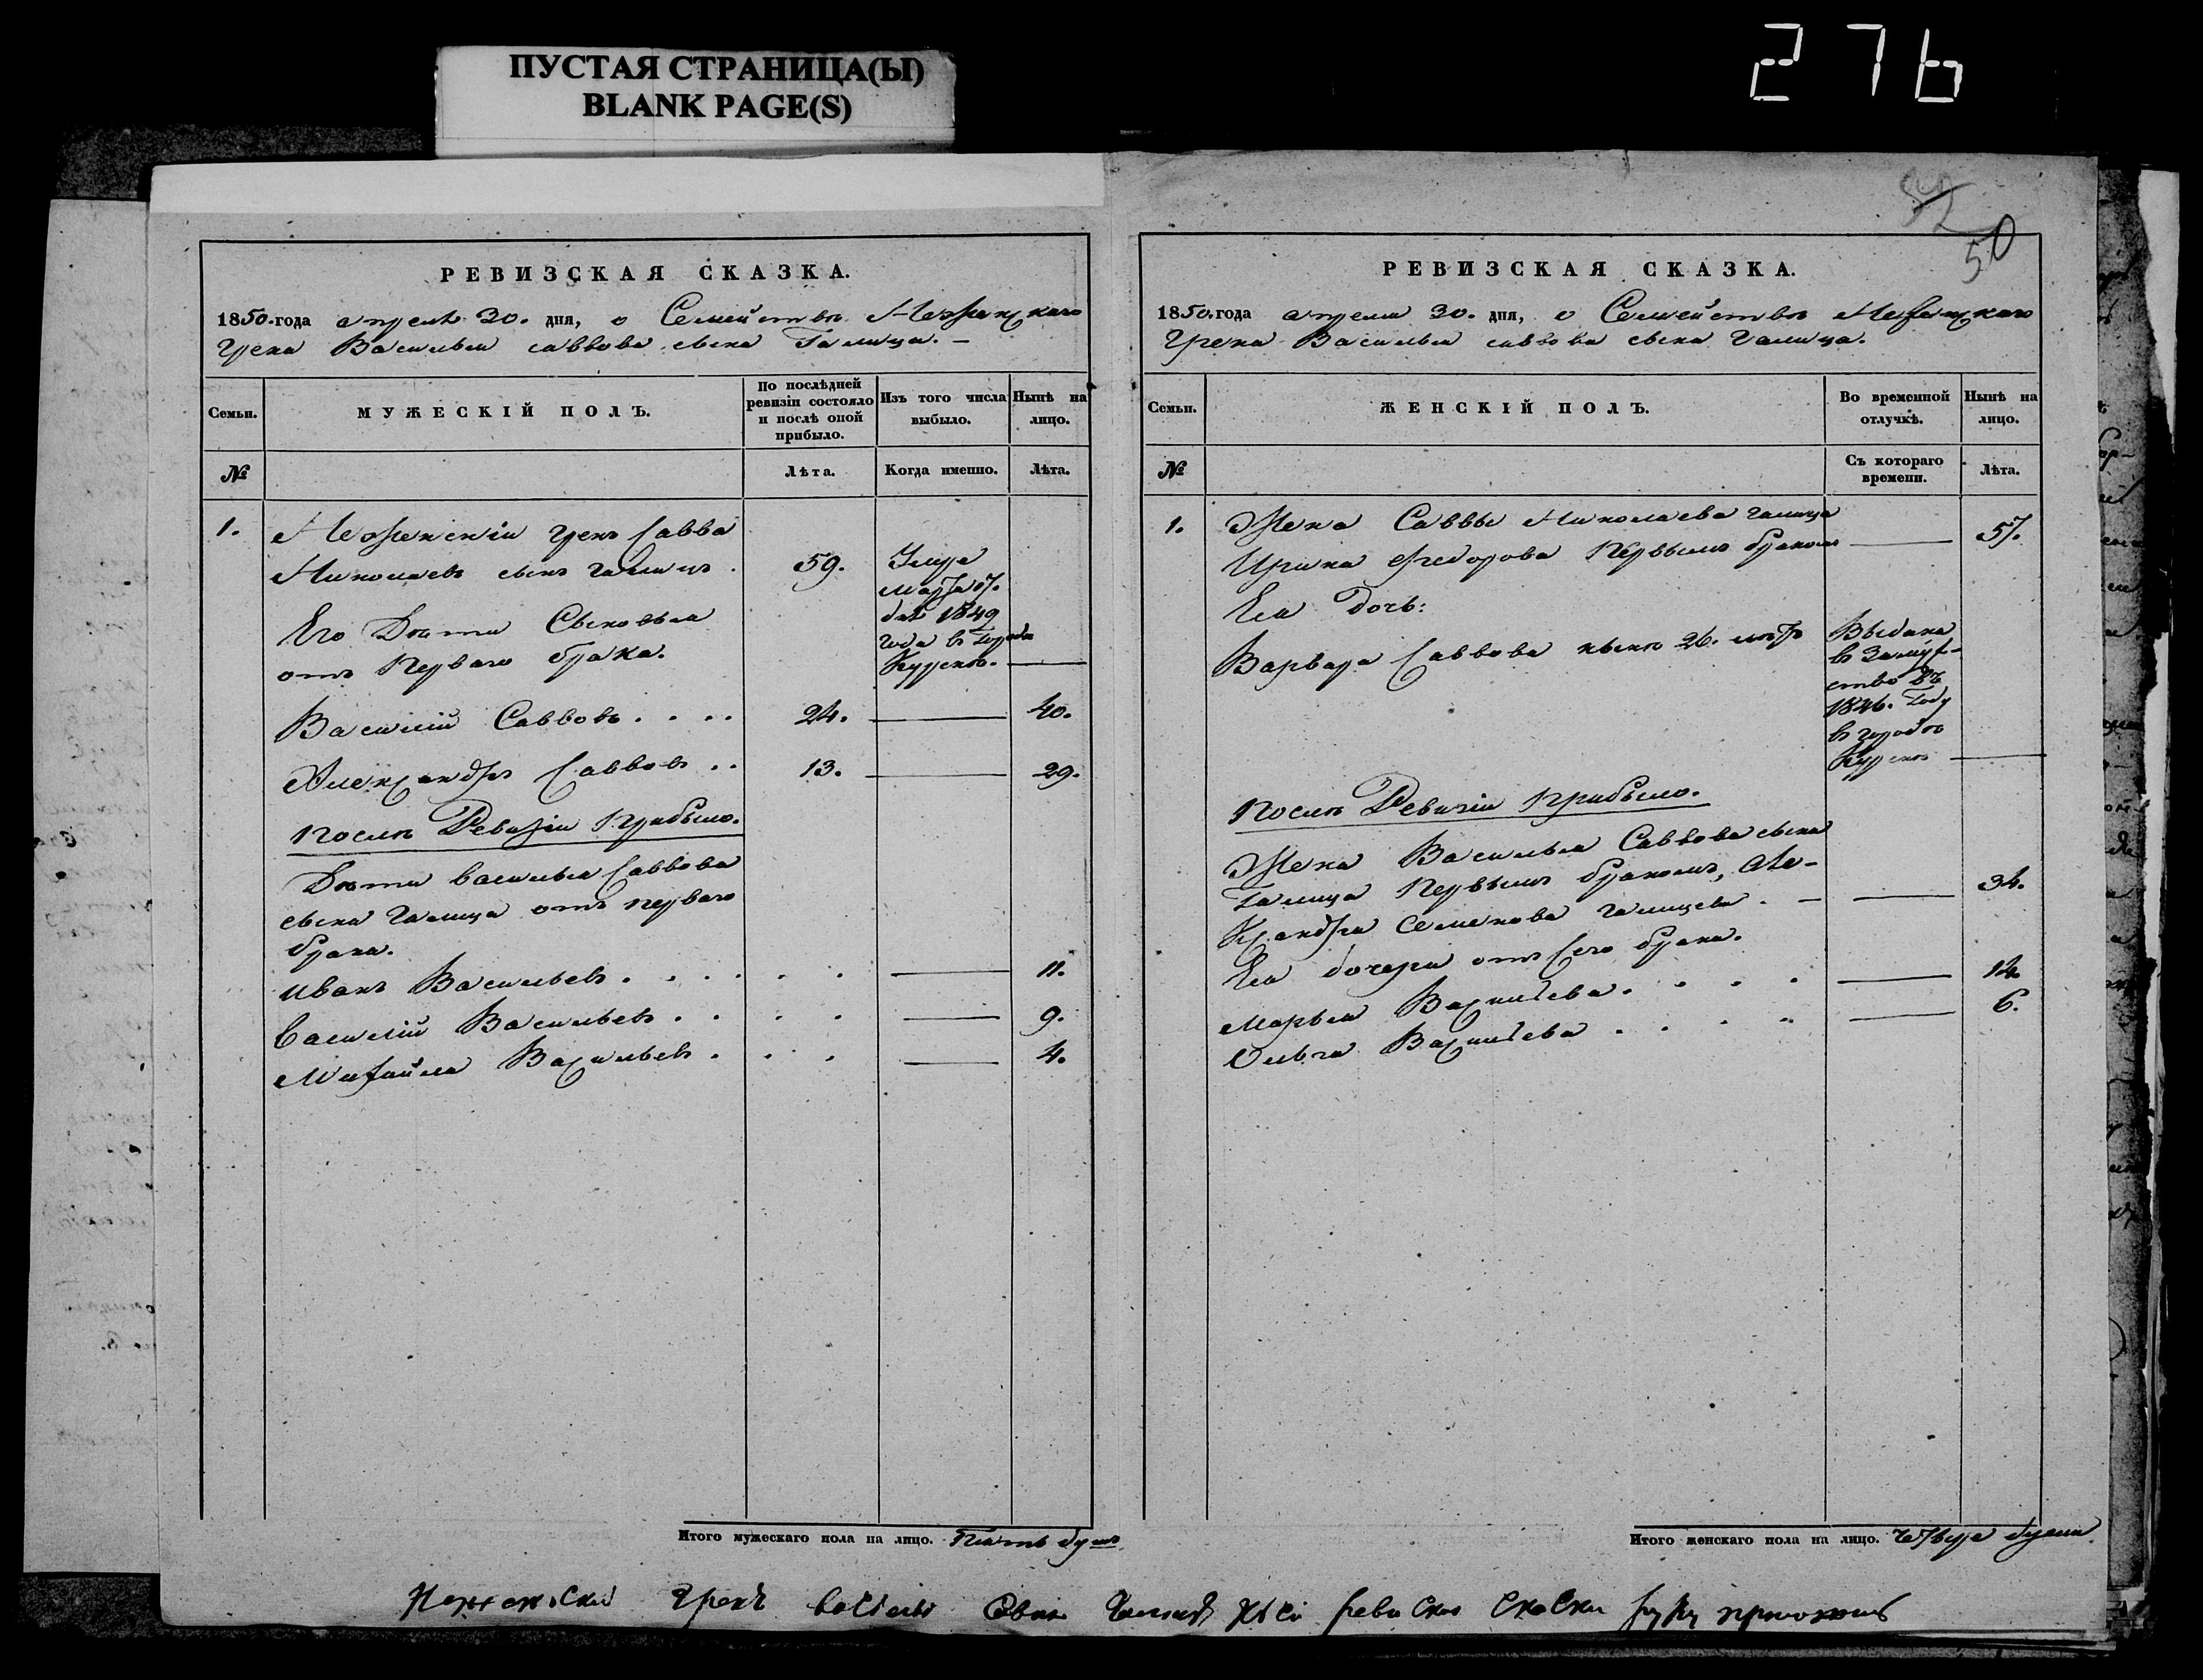 ПУСТАЯ СТРАНИЦА(Ы)
BLANK PAGE(S)
276
РЕВИЗСКАЯ СКАЗКА.
1850. года апреля 30. дня, о Семействѣ Нѣжинскаго
Грека Василья Саввова сына Галица. –
Семьи.
МУЖЕСКІЙ ПОЛЪ.
По послѣдней ревизіи состояло и послѣ оной прибыло.
Изъ того числа выбыло.
Нынѣ на лицо.
№
Лѣта.
Когда именно.
Лѣта.
1.
Нѣжинскій грекъ Савва
Николаевъ сынъ Галицъ.
59.
Умре
Марта 17.
дня 1849
года въ Городѣ
Курскѣ.
Его Дѣти Сыновья
отъ Перваго брака.
Василій Саввовъ . . . . 24. 40.
Александръ Саввовъ . . 13. 29.
Послѣ Ревизіи Прибыло.
Дѣти Василья Саввова
сына Галица отъ перваго
брака.
Иванъ Васильевъ . . . . . . 11.
Василій Васильевъ . . . . 9.
Михайла Васильевъ . . . 4.
Итого мужескаго пола на лицо. Пять душъ
50
РЕВИЗСКАЯ СКАЗКА.
1850. года апреля 30. дня, о Семействѣ Нѣжинскаго
Грека Василья Саввова сына Галица.
Семьи.
ЖЕНСКІЙ ПОЛЪ.
Во временной отлучкѣ.
Нынѣ на лицо.
№
Съ котораго времени.
Лѣта.
1.
Жена Саввы Николаева Галица
Ирина Федорова Первымъ бракомъ
57.
Ея Дочь:
Варвара Саввова нынѣ 26. лѣтъ
Выдана
въ Замуж-
ство въ
1846. Году
въ городѣ
Курскѣ
Послѣ Ревизіи Прибыло.
Жена Василья Саввова сына
Галица Первымъ бракомъ, Але-
ксандра Семенова Галицева . – 34.
Ея дочери отъ сего брака.
Марья Васильева . . . . 14.
Ольга Васильева . . . . 6.
Итого женскаго пола на лицо. четыре души.
грекъ ревиской скаски руку приложилъ